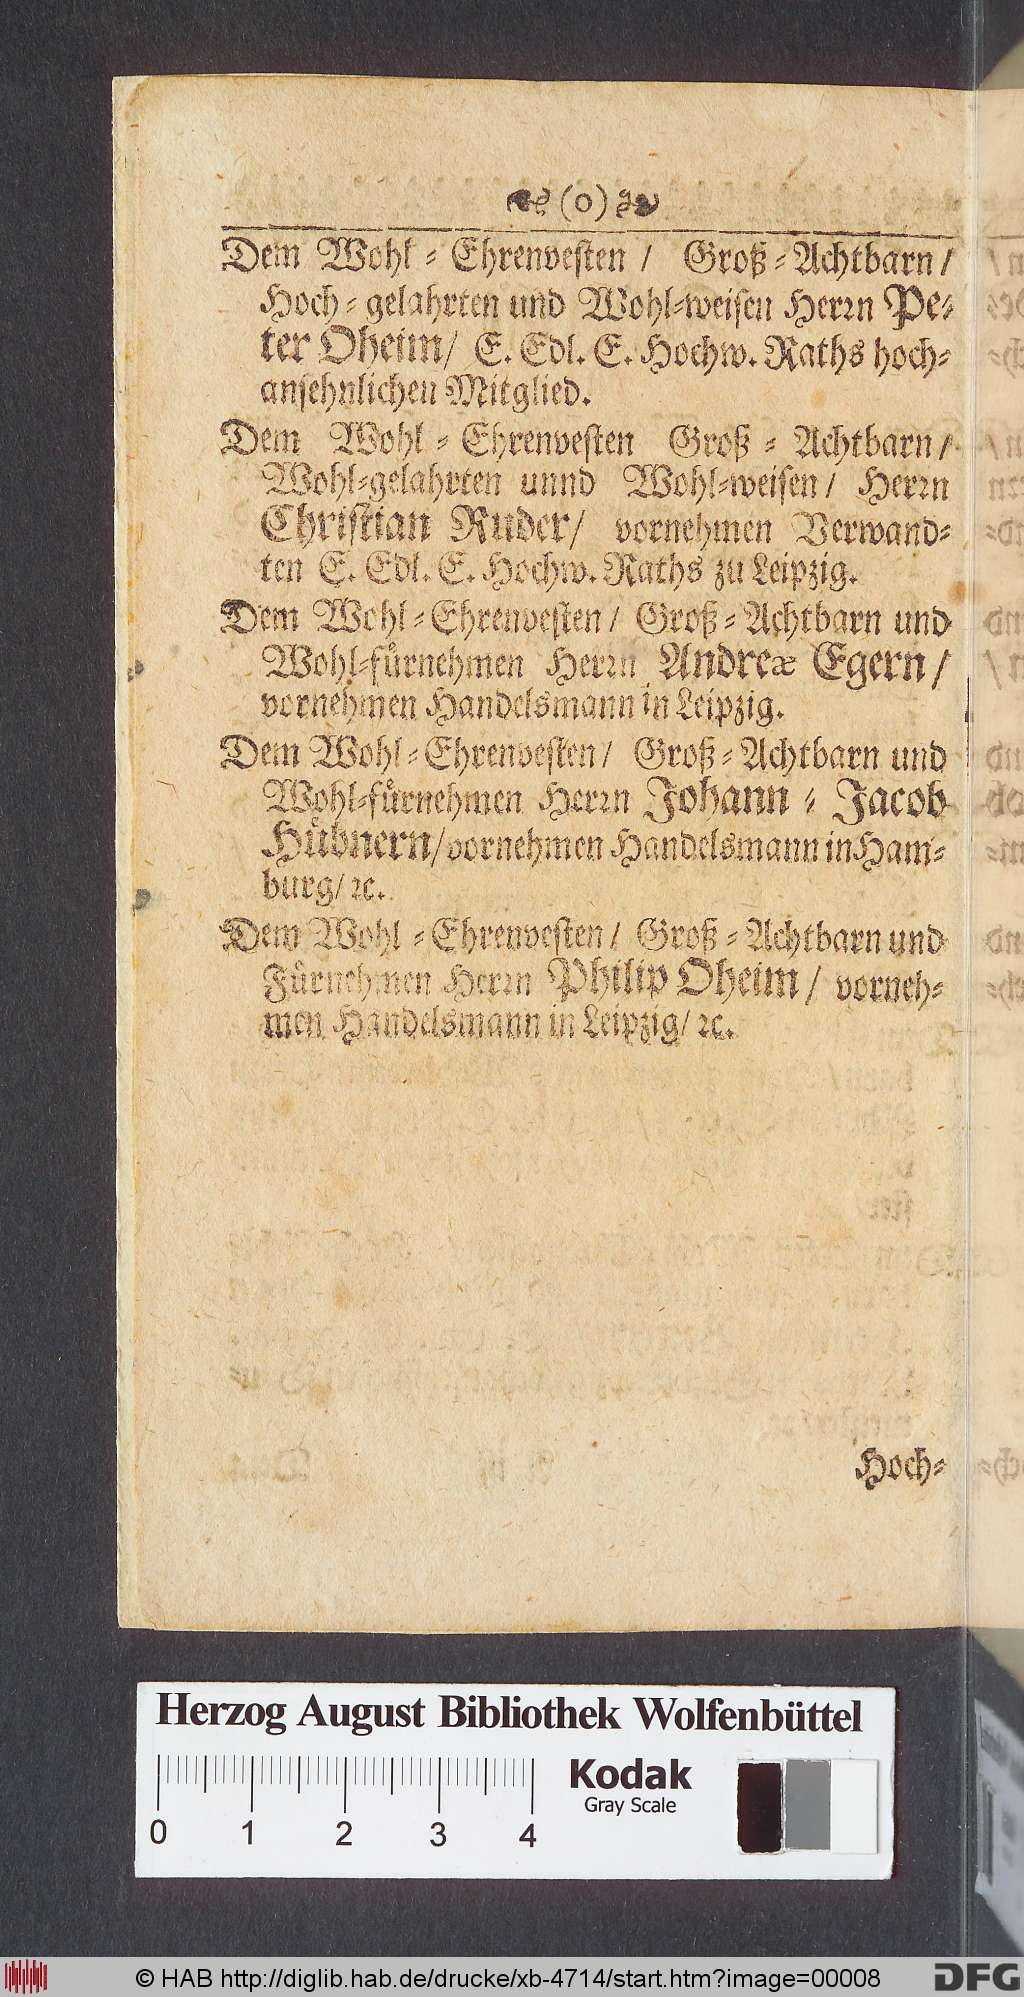 (o)
Dem Wohl-Ehrenvesten / Groß-Achtbarn /
Hoch-gelahrten und Wohl-weisen Herrn Pe-
ter Oheim / E. Edl. E. Hochw. Raths hoch-
ansehnlichen Mitglied.
Dem Wohl-Ehrenvesten Groß-Achtbarn /
Wohl-gelahrten unnd Wohl-weisen / Herrn
Christian Ruder / vornehmen Verwand-
ten E. Edl. E. Hochw. Raths zu Leipzig.
Dem Wohl-Ehrenvesten / Groß-Achtbarn und
Wohl-fürnehmen Herrn Andreæ Egern /
vornehmen Handelsmann in Leipzig.
Dem Wohl-Ehrenvesten / Groß-Achtbarn und
Wohl-fürnehmen Herrn Johann-Jacob
Hübnern / vornehmen Handelsmann in Ham-
burg / ꝛc.
Dem Wohl-Ehrenvesten / Groß-Achtbarn und
Fürnehmen Herrn Philip Oheim / vorneh-
men Handelsmann in Leipzig / ꝛc.
Hoch-
Herzog August Bibliothek Wolfenbüttel
Kodak
Gray Scale
0 1 2 3 4
© HAB http://diglib.hab.de/drucke/xb-4714/start.htm?image=00008
DFG